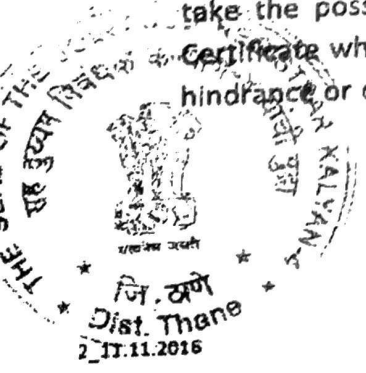 take the poss
Certificate wh
hindrance or
THE SEAL OF THE
KALYAN-
सह दुय्यम निबंधक
सत्यमेव जयते
जि. ठाणे
Dist. Thane
2_11.11.2016